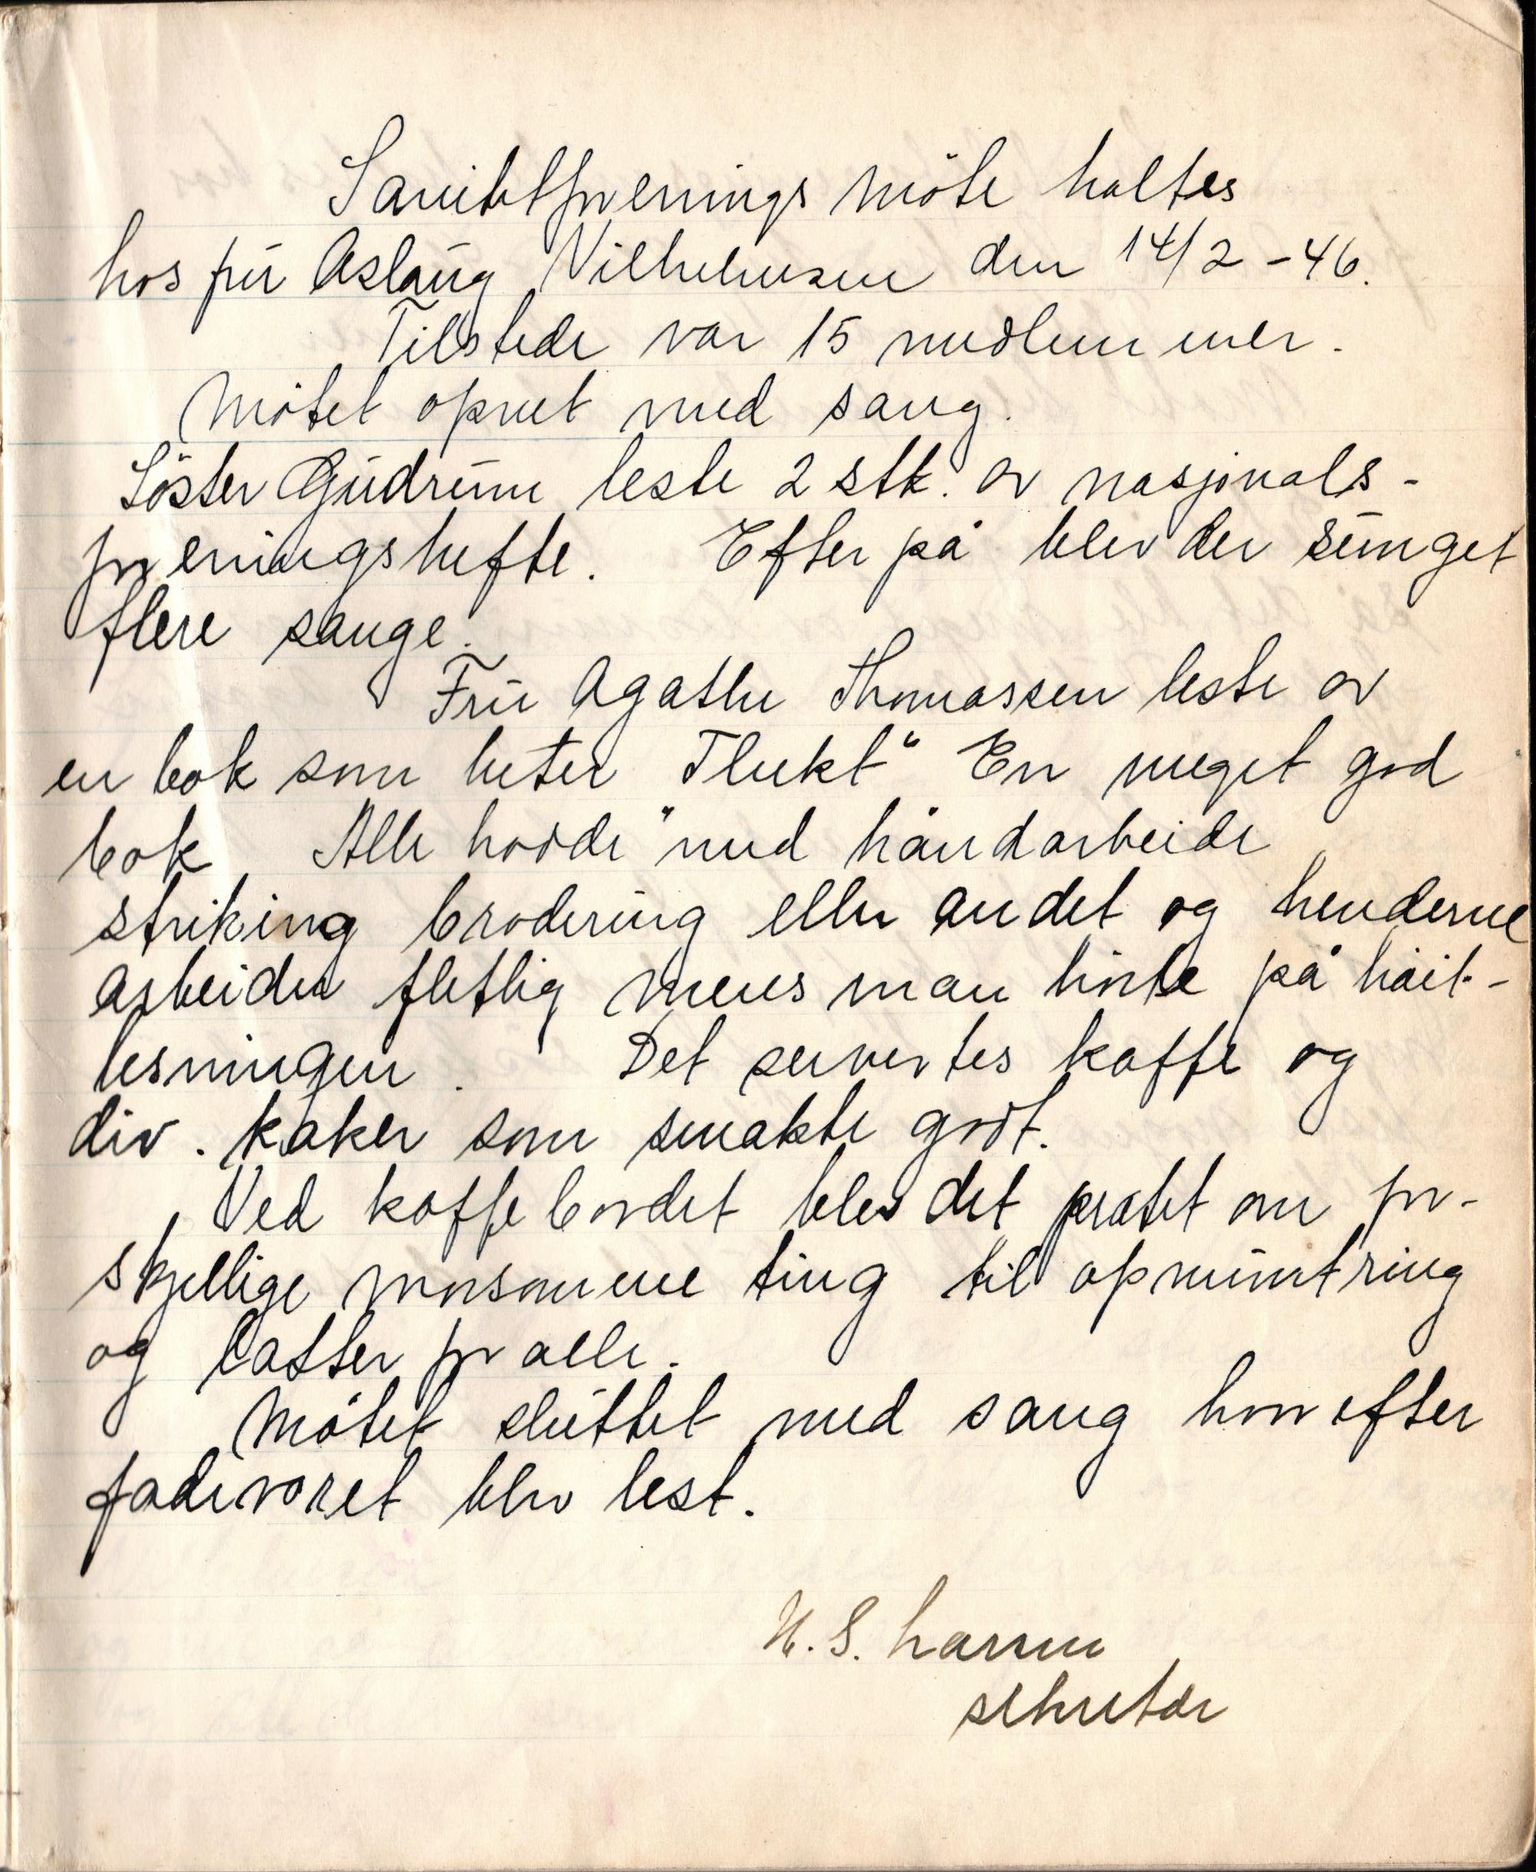 Sanitetforenings möte holtes
hos frü Aslaüg Vilhelmsen den 14/2 -46.
Tilstede var 15 medlemmer.
Mötet opnet med sang.
Söster Güdrün leste 2 stk. av nasjonals-
foreningshefte. Efter på blev der sünget
flere sange.
Frü Agathe Thomassen leste av
en bok som heter "Flukt" En meget god
bok Alle hadde med håndarbeide
striking brodering eller andet og henderne
arbeider flittig mens man hörte på höit-
lesningen. Det servertes kaffe og
div. kaker som smakte godt.
Ved kaffebordet blev det pratet om for-
skjellige morsomme ting til opmüntring
og latter for alle.
Mötet slüttet med sang hvorefter
fadervoret blev lest.
H. S. Larsen
sekretær